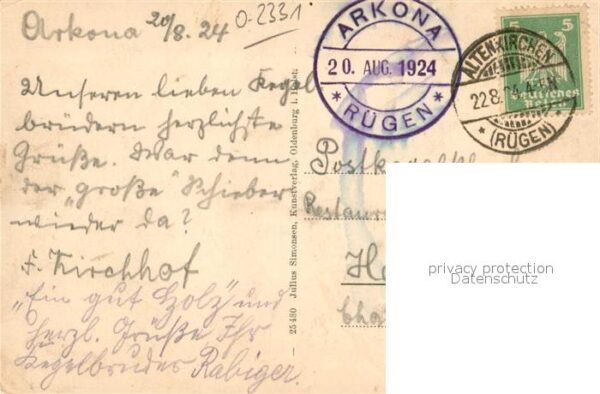 Arkona 20/8. 24
O-2331
Unseren lieben Kegel
brüdern herzlichste
Grüße. War denn
der „große" Schieber
wieder da?
F. Kirchhof
„Ein gut Holz" und
herzl. Grüße Ihr
Kegelbruder Rabiger.
25480 Julius Simonsen, Kunstverlag, Oldenburg i. Holst.
ARKONA
20. AUG. 1924
* RÜGEN *
ALTENKIRCHEN
22.8.24
* (RÜGEN)
5 5
Deutsches
Reich
Restaur
privacy protection
Datenschutz